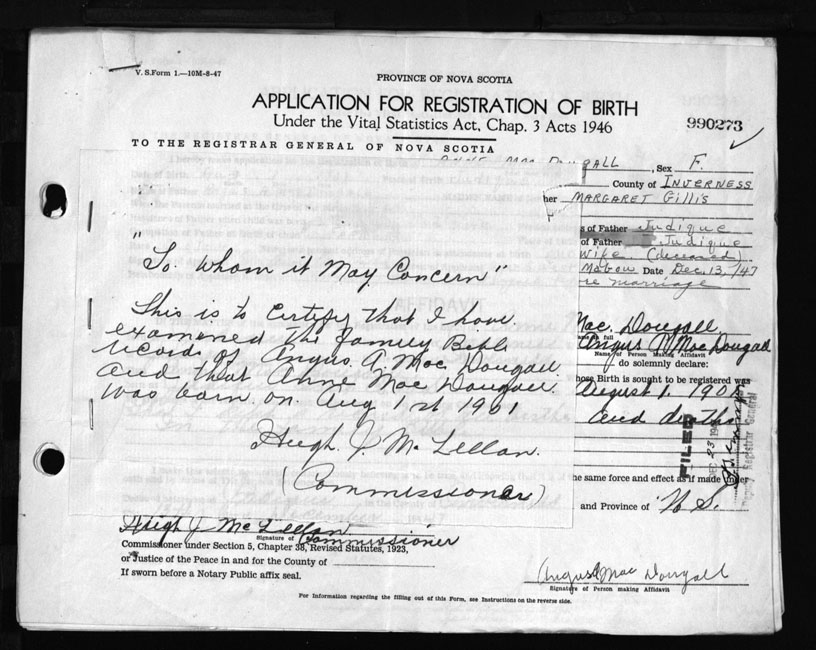 V. S. Form 1.—10M-8-47
PROVINCE OF NOVA SCOTIA
APPLICATION FOR REGISTRATION OF BIRTH
Under the Vital Statistics Act, Chap. 3 Acts 1946
990273
TO THE REGISTRAR GENERAL OF NOVA SCOTIA
MacDougall, Sex F.
County of INVERNESS
her MARGARET Gillis
s of Father Judique
of Father Judique
Wife (deceased)
Mabou Date Dec. 13, /47
marriage
"To Whom it May Concern"
This is to Certify that I have
examened the Family Bible
records of Angus A. Mac Dougall
and that Anne Mac Dougall
was born on Aug 1st 1901
Hugh. J Mc Lellan.
(Commissioner)
Mac. Dougall
me in full
Angus A MacDougall
Name of Person Making Affidavit
do solemnly declare:
hose Birth is sought to be registered was
August 1, 1901
and deaths
FILED
DEC 23 19
Registrar General
he same force and effect as if made under
and Province of N S.
Hugh J Mc Lellan
Signature of Commissioner
Commissioner under Section 5, Chapter 38, Revised Statutes, 1923,
or Justice of the Peace in and for the County of
If sworn before a Notary Public affix seal.
Angus A Mac Dougall
Signature of Person making Affidavit
For Information regarding the filling out of this Form, see Instructions on the reverse side.